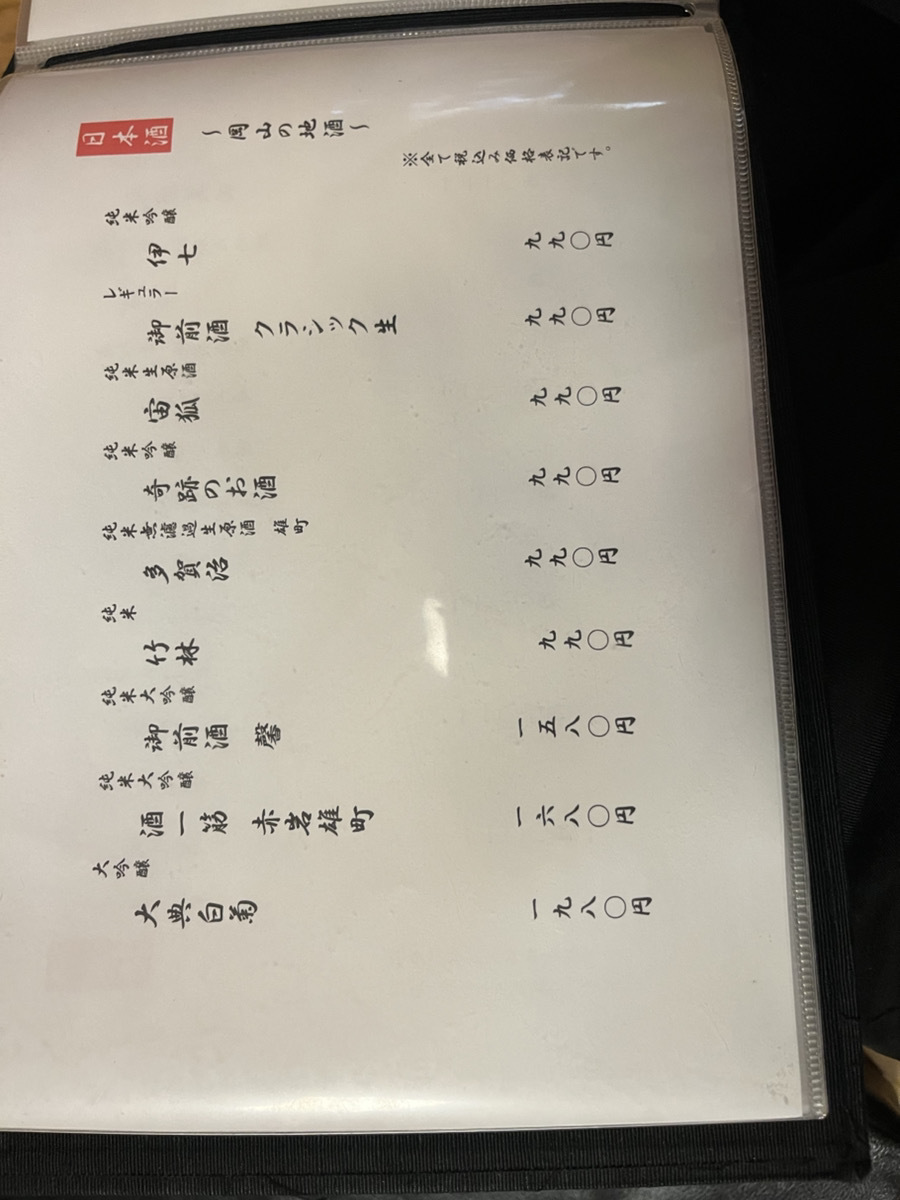 日本酒 〜岡山の地酒〜
※全て税込み価格表記です。
純米吟醸
伊七 九九〇円
レギュラー
御前酒 クラシック生 九九〇円
純米生原酒
宙狐 九九〇円
純米吟醸
奇跡のお酒 九九〇円
純米無濾過生原酒 雄町
多賀治 九九〇円
純米
竹林 九九〇円
純米大吟醸
御前酒 馨 一五八〇円
純米大吟醸
酒一筋 赤岩雄町 一六八〇円
大吟醸
大典白菊 一九八〇円